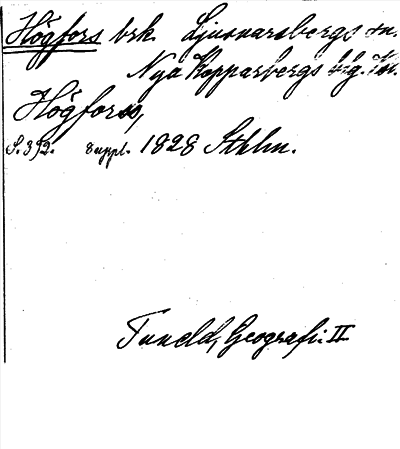 Högfors brk. Ljusnarsbergs sn.
Nya Kopparbergs blg. Kn.
Högforss,
S. 392. suppl. 1828 Sthlm.
Tuneld, Geografi: II